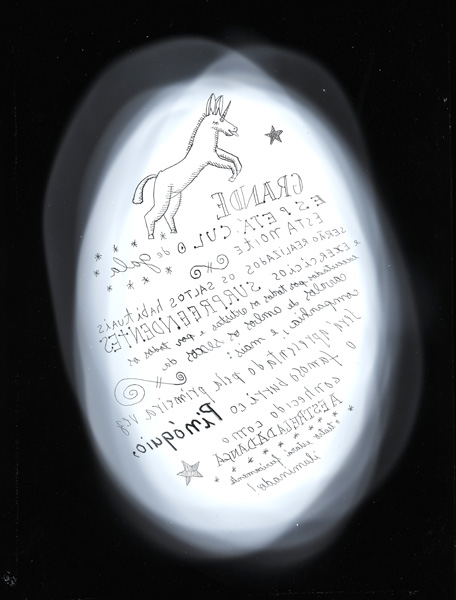 GRANDE
ESPETÁCULO de gala
ESTA NOITE
SERÃO REALIZADOS OS SALTOS habituais
e EXERCÍCIOS SURPREENDENTES
executados por todos os artistas e por todos os
cavalos de ambos os sexos da
companhia, e mais:
Será apresentado pela primeira vez
o famoso burrico Pinóquio,
conhecido como
A ESTRELA DA DANÇA
estará
iluminado!